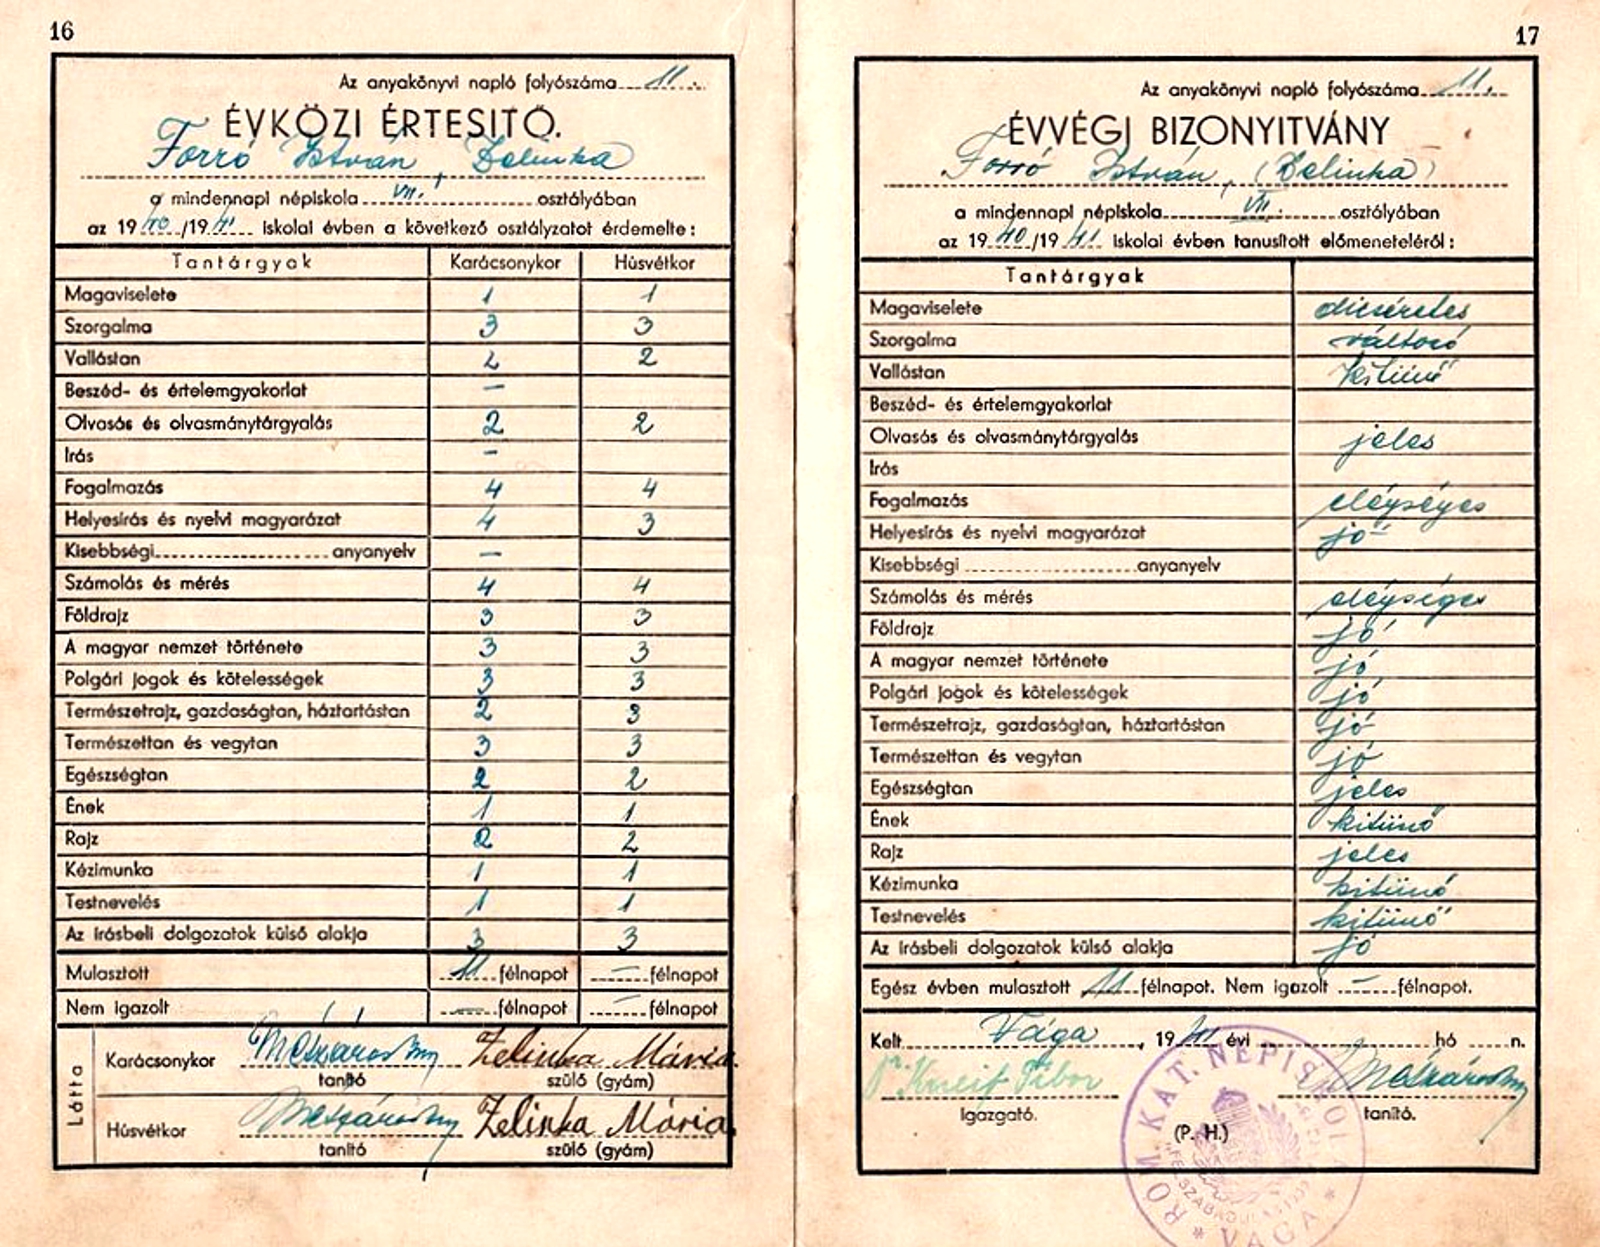 16
Az anyakönyvi napló folyószáma 11.
ÉVKÖZI ÉRTESITŐ.
Forró István, Zelinka
a mindennapi népiskola VII. osztályában
az 1940/1941 iskolai évben a következő osztályzatot érdemelte:
Tantárgyak Karácsonykor Húsvétkor
Magaviselete 1 1
Szorgalma 3 3
Vallástan 2 2
Beszéd- és értelemgyakorlat —
Olvasás és olvasmánytárgyalás 2 2
Irás -
Fogalmazás 4 4
Helyesírás és nyelvi magyarázat 4 3
Kisebbségi anyanyelv —
Számolás és mérés 4 4
Földrajz 3 3
A magyar nemzet története 3 3
Polgári jogok és kötelességek 3 3
Természetrajz, gazdaságtan, háztartástan 2 3
Természettan és vegytan 3 3
Egészségtan 2 2
Ének 1 1
Rajz 2 2
Kézimunka 1 1
Testnevelés 1 1
Az írásbeli dolgozatok külső alakja 3 3
Mulasztott 11 félnapot — félnapot
Nem igazolt — félnapot — félnapot
Látta
Karácsonykor Mészáros Zelinka Mária
tanító szülő (gyám)
Húsvétkor Mészáros Zelinka Mária
tanító szülő (gyám)
17
Az anyakönyvi napló folyószáma 11.
ÉVVÉGI BIZONYITVÁNY
Forró István, (Zelinka)
a mindennapi népiskola VII. osztályában
az 1940/1941 iskolai évben tanusított előmeneteléről:
Tantárgyak
Magaviselete dicséretes
Szorgalma változó
Vallástan kitünő
Beszéd- és értelemgyakorlat
Olvasás és olvasmánytárgyalás jeles
Irás
Fogalmazás elégséges
Helyesírás és nyelvi magyarázat jó
Kisebbségi anyanyelv
Számolás és mérés elégséges
Földrajz jó
A magyar nemzet története jó
Polgári jogok és kötelességek jó
Természetrajz, gazdaságtan, háztartástan jó
Természettan és vegytan jó
Egészségtan jeles
Ének kitünő
Rajz jeles
Kézimunka kitünő
Testnevelés kitünő
Az írásbeli dolgozatok külső alakja jó
Egész évben mulasztott 11 félnapot. Nem igazolt — félnapot.
Kelt Vága, 1941 évi hó n.
Kneif Tibor Mészáros
igazgató. tanító.
(P. H.)
RÓM. KAT. NÉPISKOLA
* VÁGA *